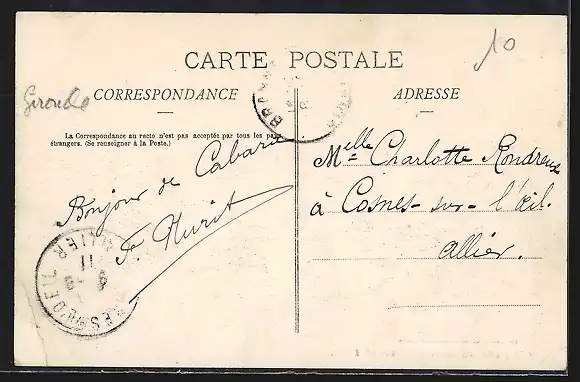 10
CARTE POSTALE
Gironde
CORRESPONDANCE
ADRESSE
La Correspondance au recto n'est pas acceptée par tous les pays
étrangers. (Se renseigner à la Poste.)
Bonjour de Cabara
F.
Melle Charlotte
à Cosnes-sur-l'œil.
Allier.
ALLIER
11